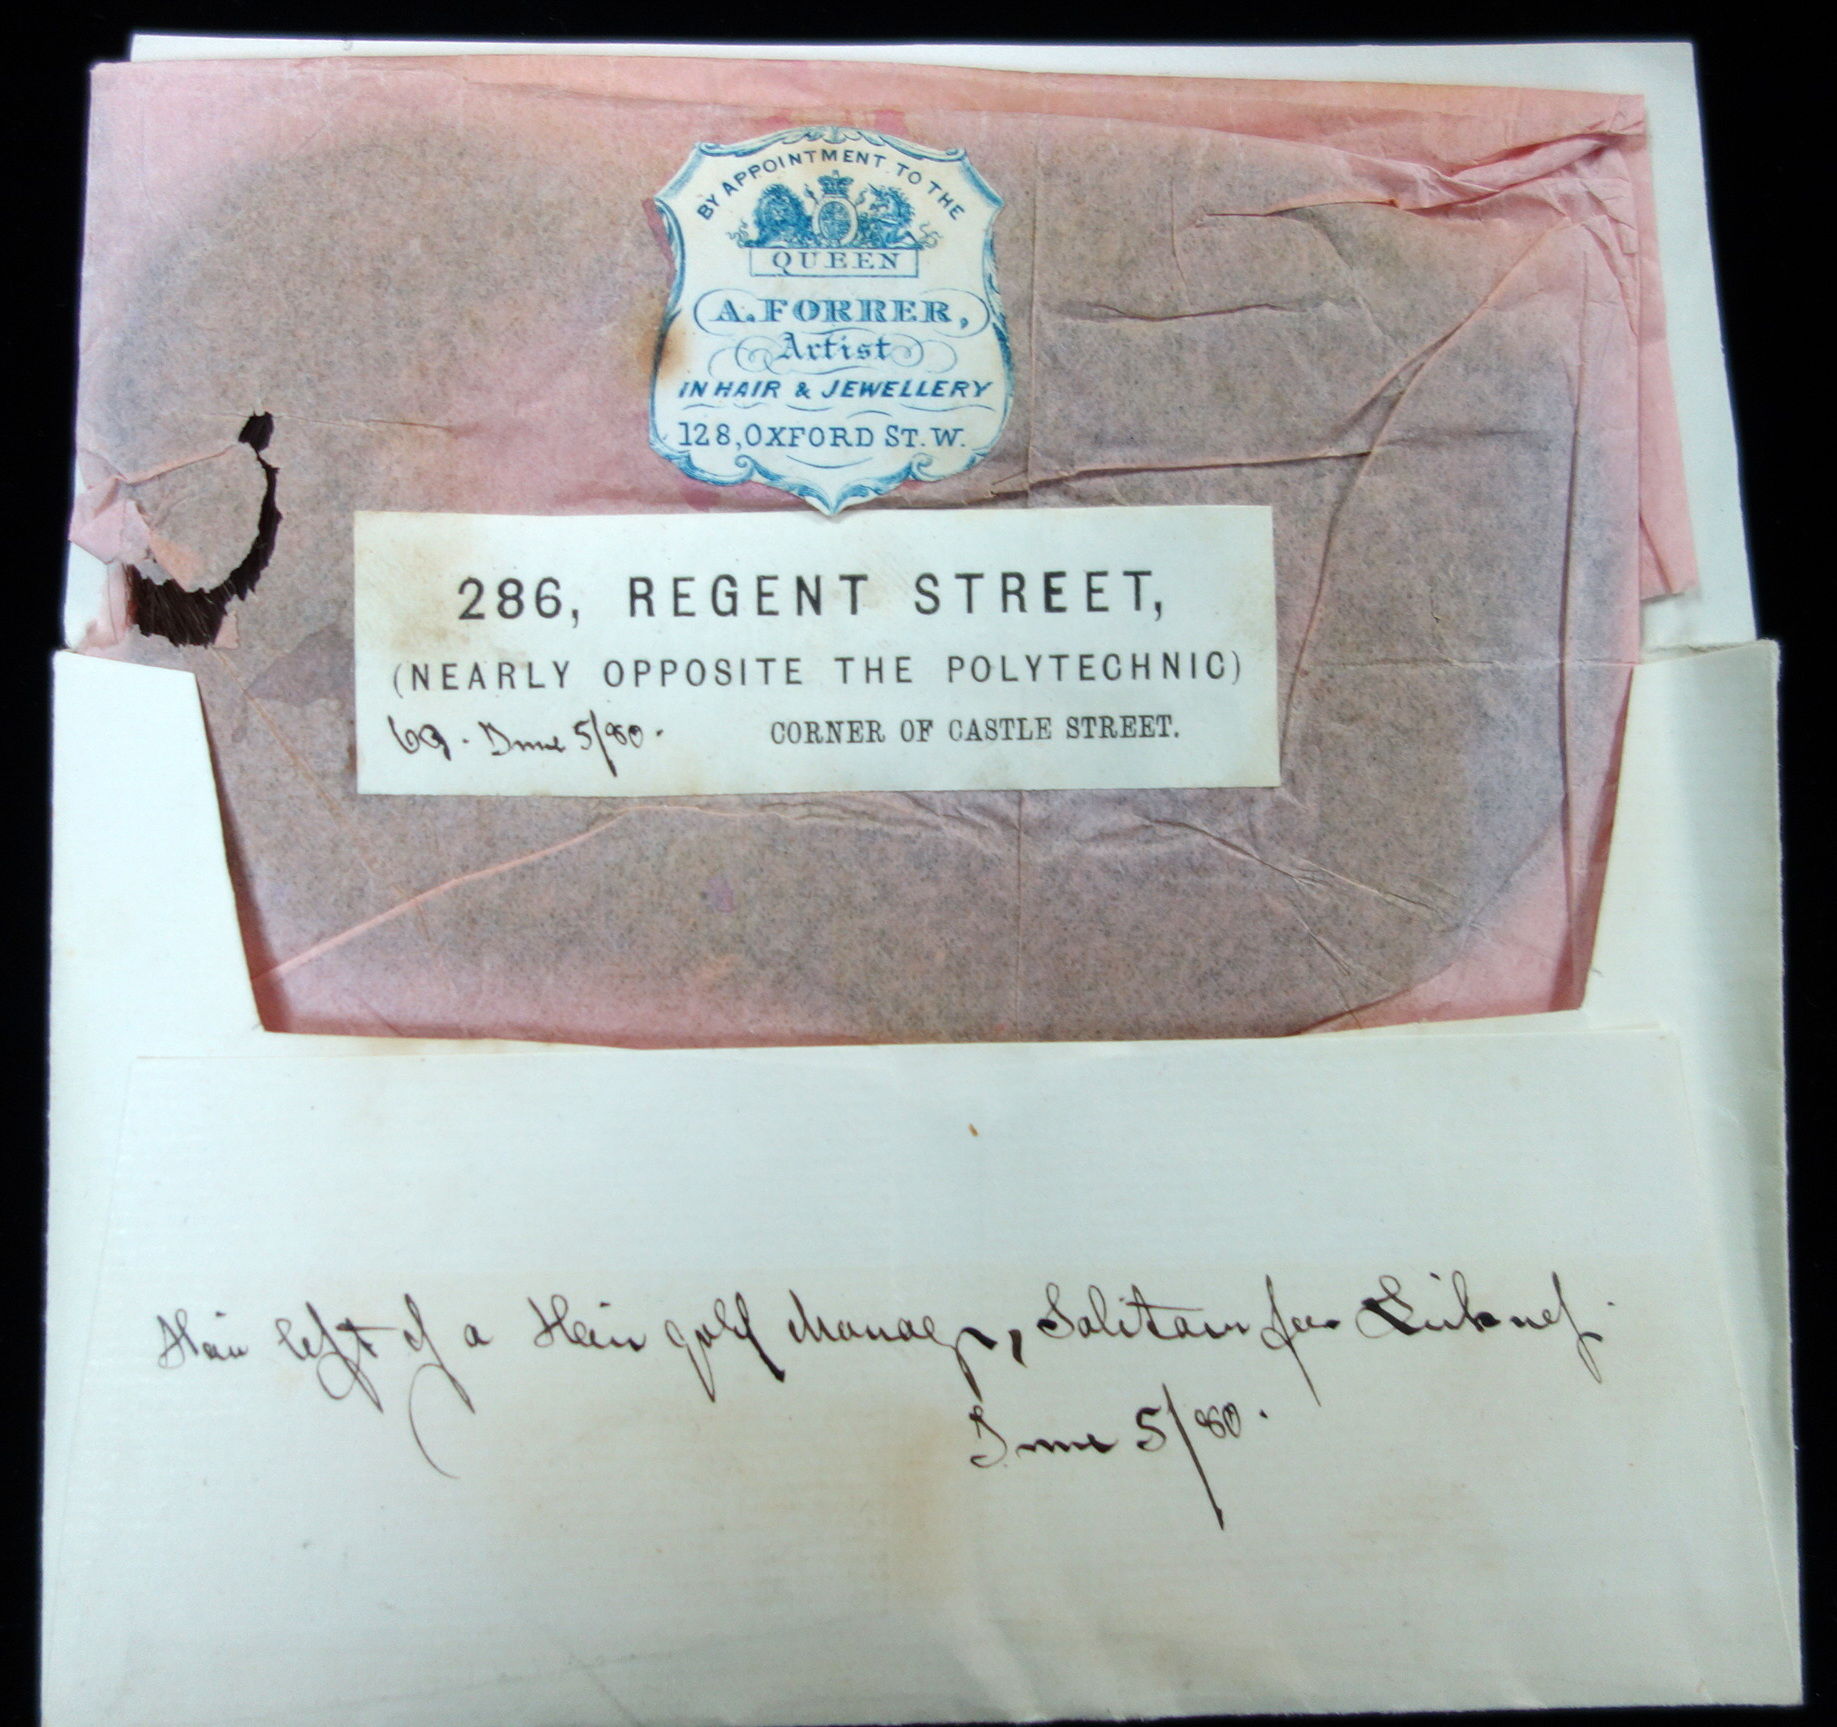 BY APPOINTMENT TO THE
QUEEN
A. FORRER,
Artist
IN HAIR & JEWELLERY
128, OXFORD ST. W.
286, REGENT STREET,
(NEARLY OPPOSITE THE POLYTECHNIC)
June 5/80. CORNER OF CASTLE STREET.
Hair left of a Hair gold Solitaire for
June 5/80.